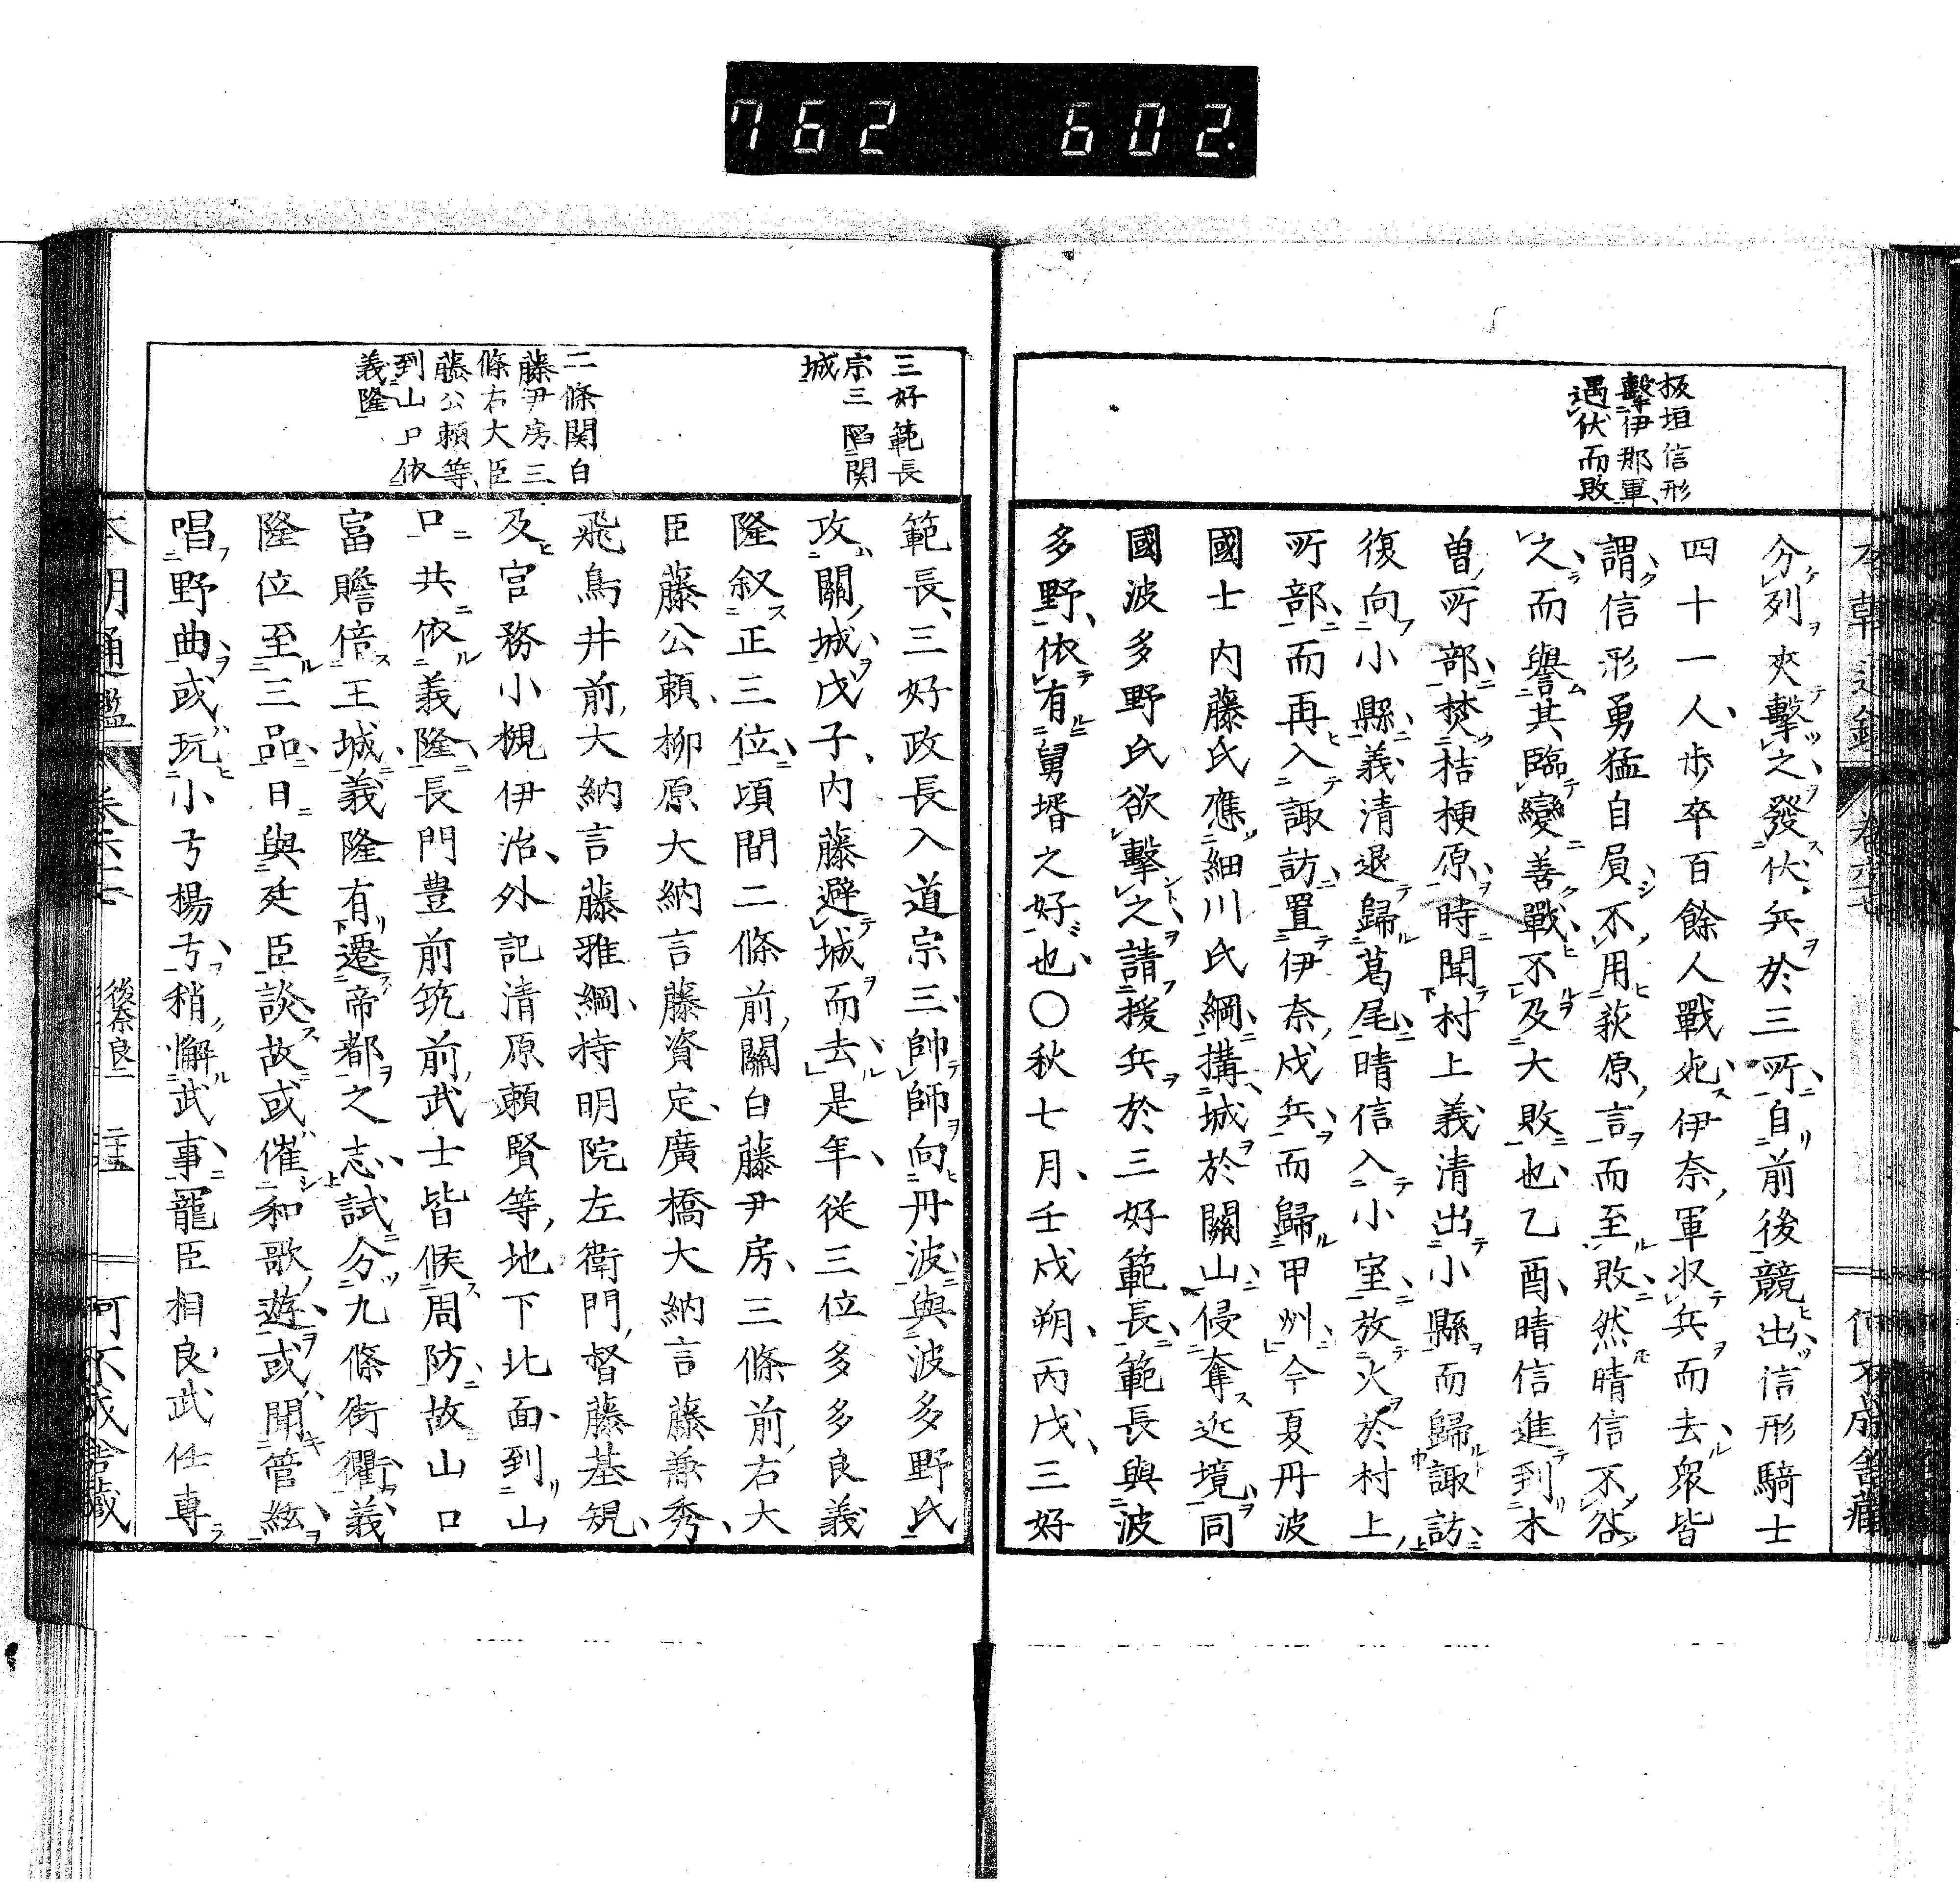 762 602.
板垣信形
擊伊那軍
遇伏而敗
分列夾擊之發伏兵於三所自前後競出信形騎士
四十一人步卒百餘人戰死伊奈軍収兵而去衆皆
謂信形勇猛自負不用荻原言而至敗然晴信不咎
之而譽其臨變善戰不及大敗也乙酉晴信進到木
曽所部焚桔梗原時聞村上義清出小縣而歸諏訪
復向小縣義清退歸葛尾晴信入小室放火於村上
所部而再入諏訪置伊奈戍兵而歸甲州今夏丹波
國士内藤氏應細川氏綱搆城於關山侵奪近境同
國波多野氏欲擊之請援兵於三好範長範長與波
多野依有舅壻之好也〇秋七月壬戌朔丙戌三好
三好範長
宗三陷関
城
二條関白
藤尹房三
條右大臣
藤公頼等
到山口依
義隆
範長三好政長入道宗三帥師向丹波與波多野氏
攻關城戊子内藤避城而去是年從三位多多良義
隆叙正三位頃間二條前關白藤尹房三條前右大
臣藤公頼柳原大納言藤資定廣橋大納言藤兼秀
飛鳥井前大納言藤雅綱持明院左衛門督藤基規
及官務小槻伊治外記清原頼賢等地下北面到山
口共依義隆長門豊前筑前武士皆候周防故山口
富贍倍王城義隆有遷帝都之志試分九條街衢義
隆位至三品日與廷臣談故或催和歌遊或聞管絃
唱野曲或玩小弓楊弓稍懈武事寵臣相良武任專
本朝通鑑
後奈良一
何不成舎藏